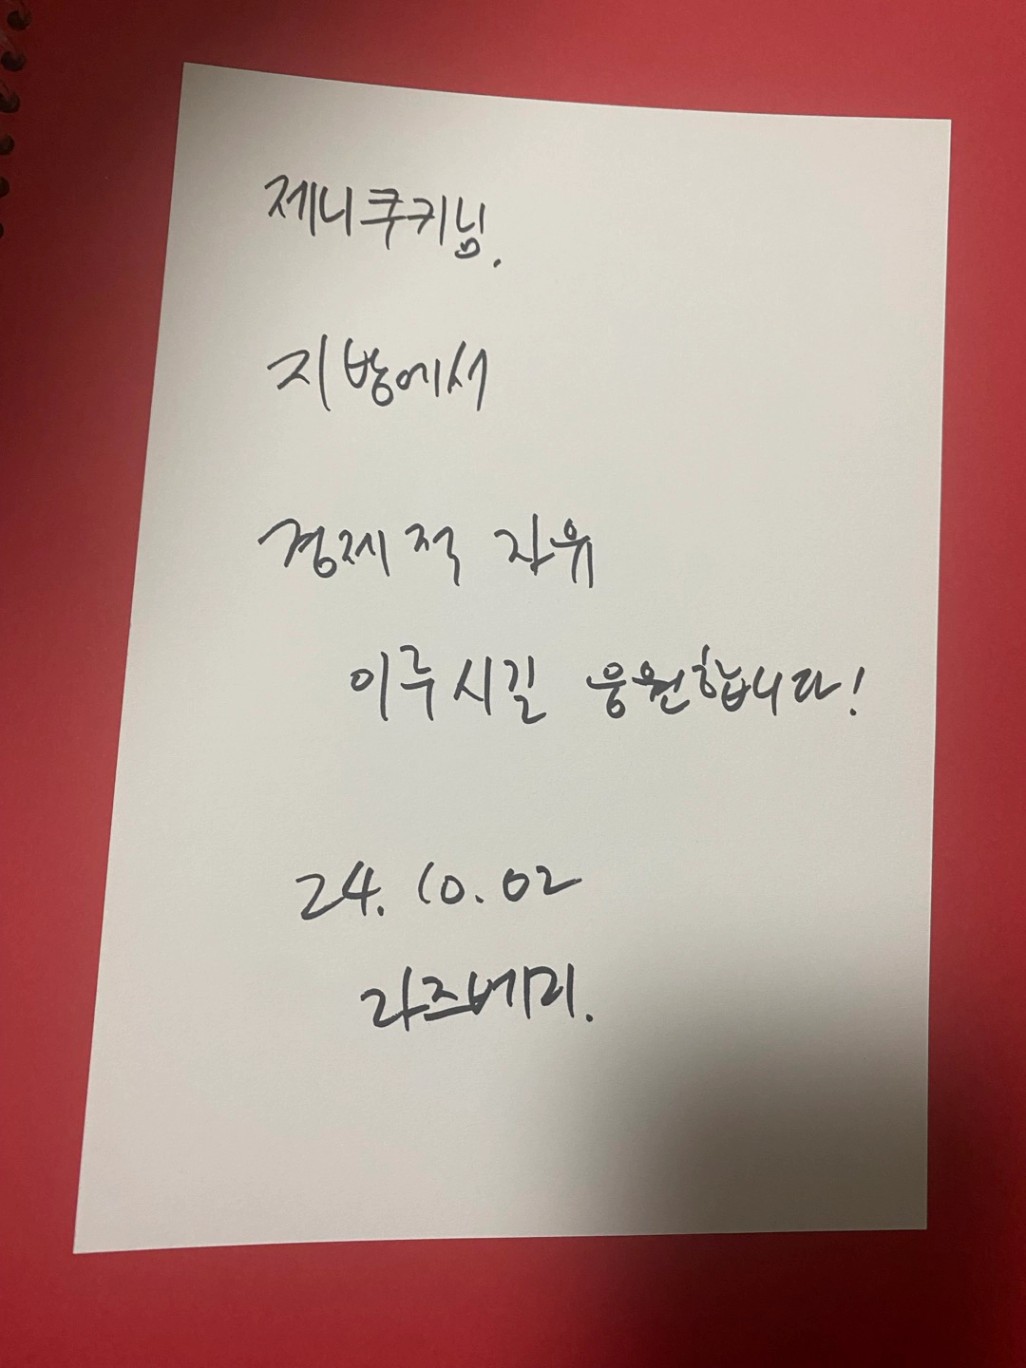 제니쿠키님.
지방에서
경제적 자유
이루시길 응원합니다!
24. 10. 02
라즈베리.